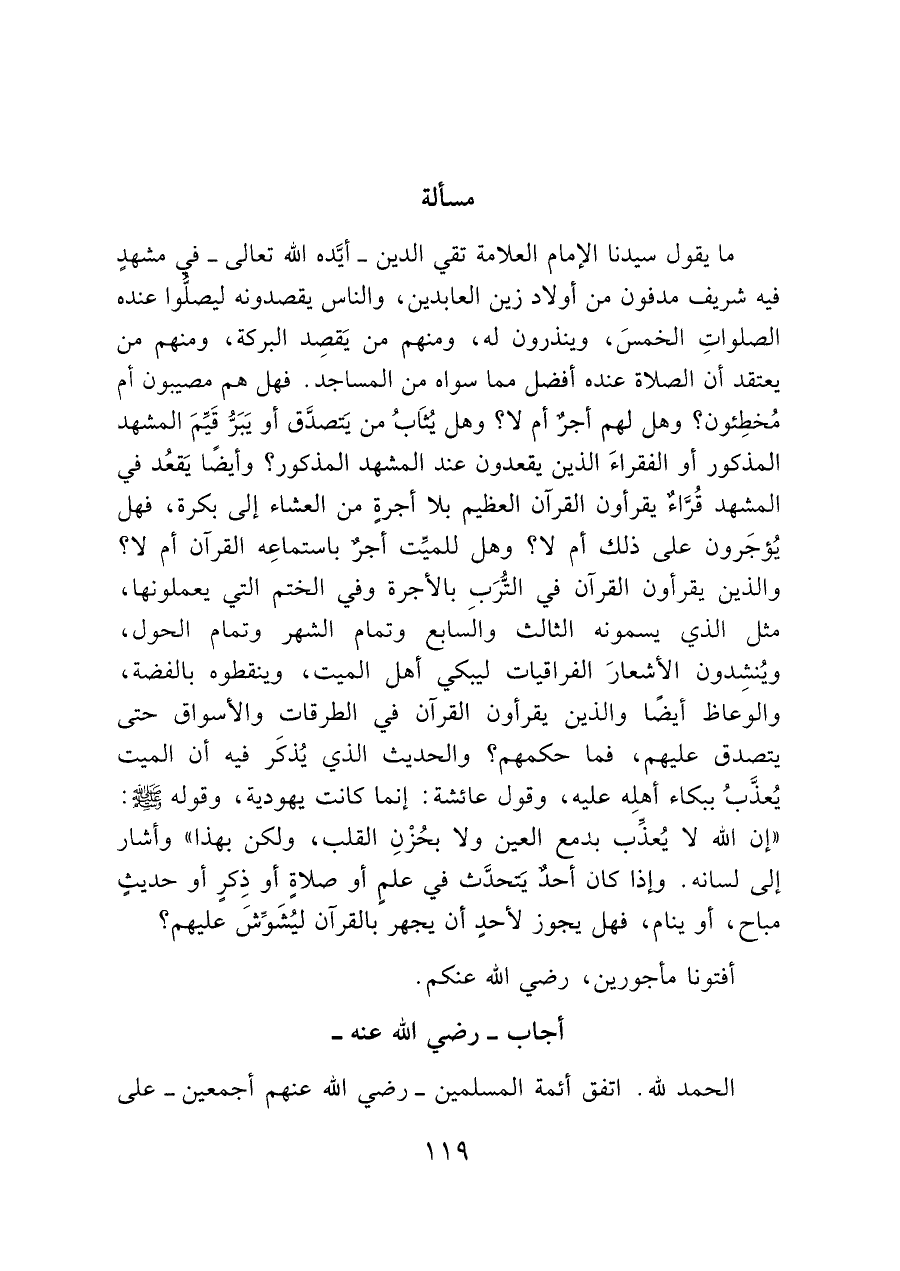 مسألة
ما يقول سيدنا الإمام العلامة تقي الدين ـ أيَّده الله تعالى ـ في مشهدٍ
فيه شريف مدفون من أولاد زين العابدين، والناس يقصدونه ليصلُّوا عنده
الصلواتِ الخمسَ، وينذرون له، ومنهم من يَقصِد البركة، ومنهم من
يعتقد أن الصلاة عنده أفضل مما سواه من المساجد. فهل هم مصيبون أم
مُخطِئون؟ وهل لهم أجرٌ أم لا؟ وهل يُثَابُ من يَتصدَّق أو يَبَرُّ قَيِّمَ المشهد
المذكور أو الفقراءَ الذين يقعدون عند المشهد المذكور؟ وأيضًا يَقعُد في
المشهد قُرَّاءٌ يقرأون القرآن العظيم بلا أجرةٍ من العشاء إلى بكرة، فهل
يُؤجَرون على ذلك أم لا؟ وهل للميِّت أجرٌ باستماعِه القرآن أم لا؟
والذين يقرأون القرآن في التُّرَبِ بالأجرة وفي الختم التي يعملونها،
مثل الذي يسمونه الثالث والسابع وتمام الشهر وتمام الحول،
ويُنشِدون الأشعارَ الفراقيات ليبكي أهل الميت، وينقطوه بالفضة،
والوعاظ أيضًا والذين يقرأون القرآن في الطرقات والأسواق حتى
يتصدق عليهم، فما حكمهم؟ والحديث الذي يُذكَر فيه أن الميت
يُعذَّبُ ببكاء أهلِه عليه، وقول عائشة: إنما كانت يهودية، وقوله ﷺ:
«إن الله لا يُعذِّب بدمع العين ولا بحُزْنِ القلب، ولكن بهذا» وأشار
إلى لسانه. وإذا كان أحدٌ يَتحدَّث في علمٍ أو صلاةٍ أو ذِكرٍ أو حديثٍ
مباح، أو ينام، فهل يجوز لأحدٍ أن يجهر بالقرآن ليُشَوِّشَ عليهم؟
أفتونا مأجورين، رضي الله عنكم.
أجاب ـ رضي الله عنه ـ
الحمد لله. اتفق أئمة المسلمين ـ رضي الله عنهم أجمعين ـ على
١١٩